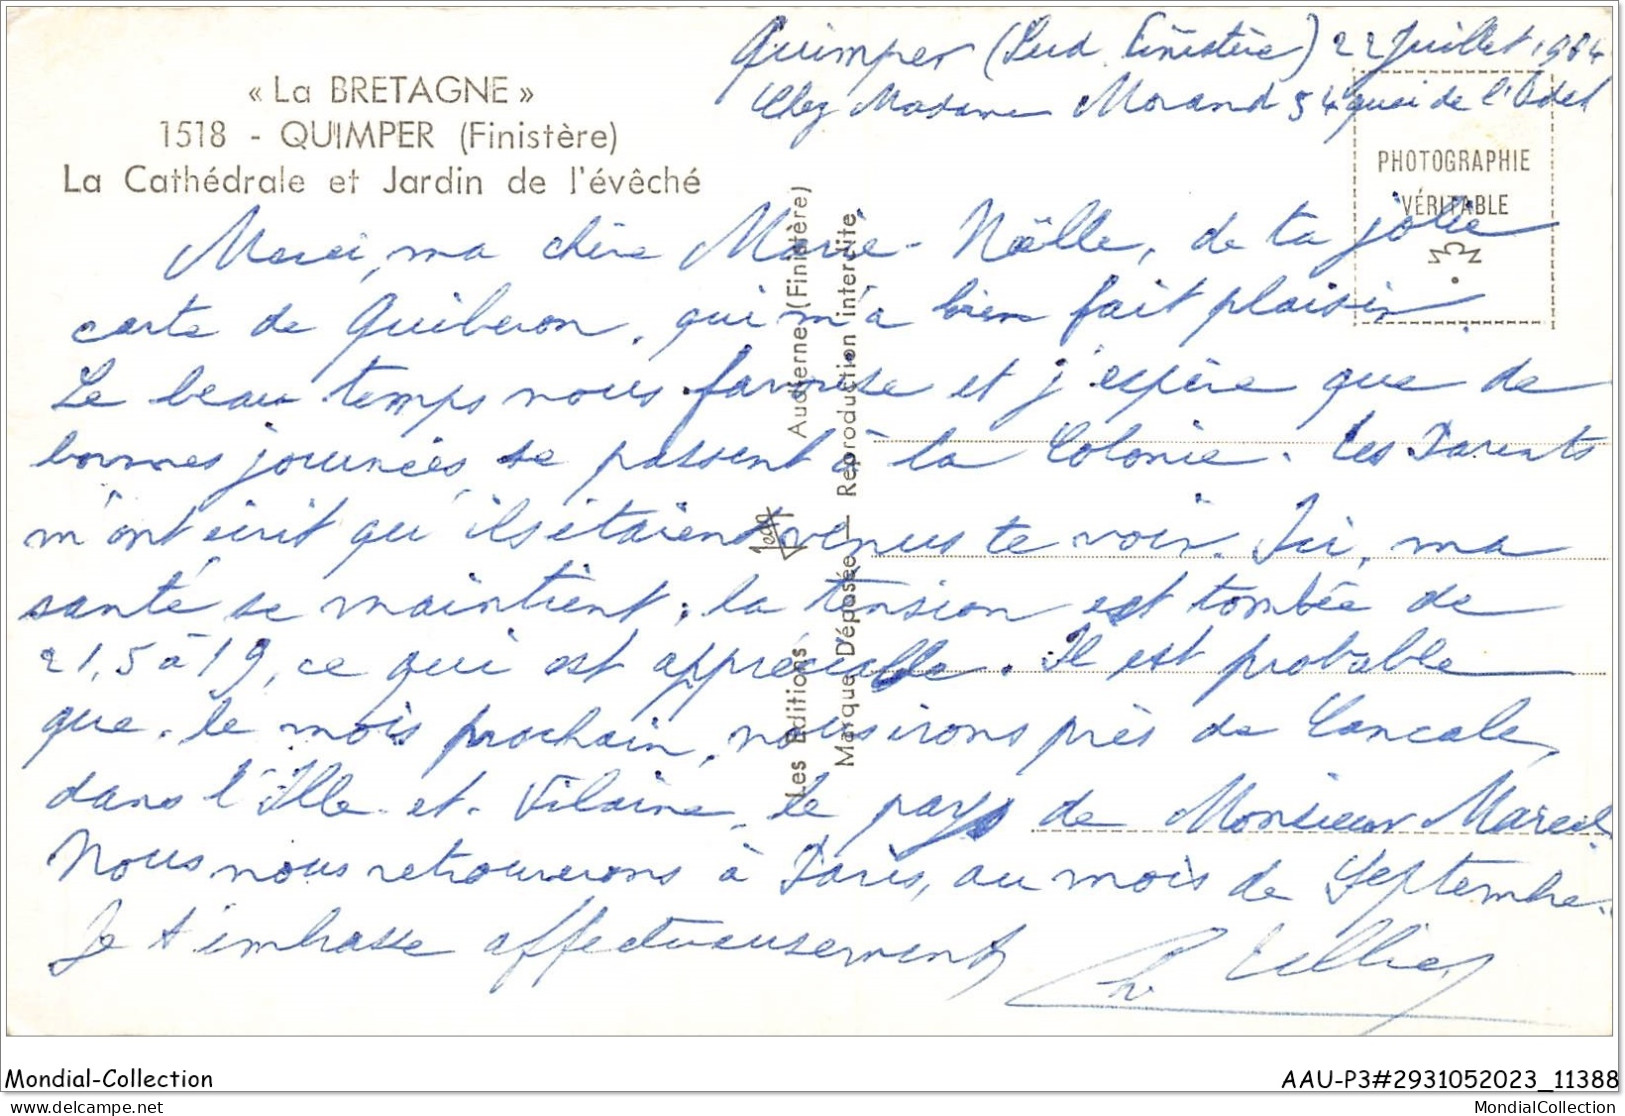 Quimper (Sud Finistère) 22 Juillet 1964
Chez Madame Morand 54 quai de l'Odet
« La BRETAGNE »
1518 - QUIMPER (Finistère)
La Cathédrale et Jardin de l'évêché
PHOTOGRAPHIE
VÉRITABLE
Merci, ma chère Marie-Noëlle, de ta jolie
carte de Quiberon, qui m'a bien fait plaisir.
Le beau temps nous favorise et j'espère que de
bonnes journées se passent à la Colonie. Tes Parents
m'ont écrit qu'ils étaient venus te voir. Ici, ma
santé se maintient : la tension est tombée de
21,5 à 19, ce qui est appréciable. Il est probable
que, le mois prochain, nous irons près de Cancale,
dans l'Ille-et-Vilaine, le pays de Monsieur Marcel.
Nous nous retrouverons à Paris, au mois de Septembre.
Je t'embrasse affectueusement
Les Éditions Audierne (Finistère)
Marque Déposée — Reproduction interdite
Mondial-Collection
AAU-P3#2931052023_11388
delcampe.net
MondialCollection